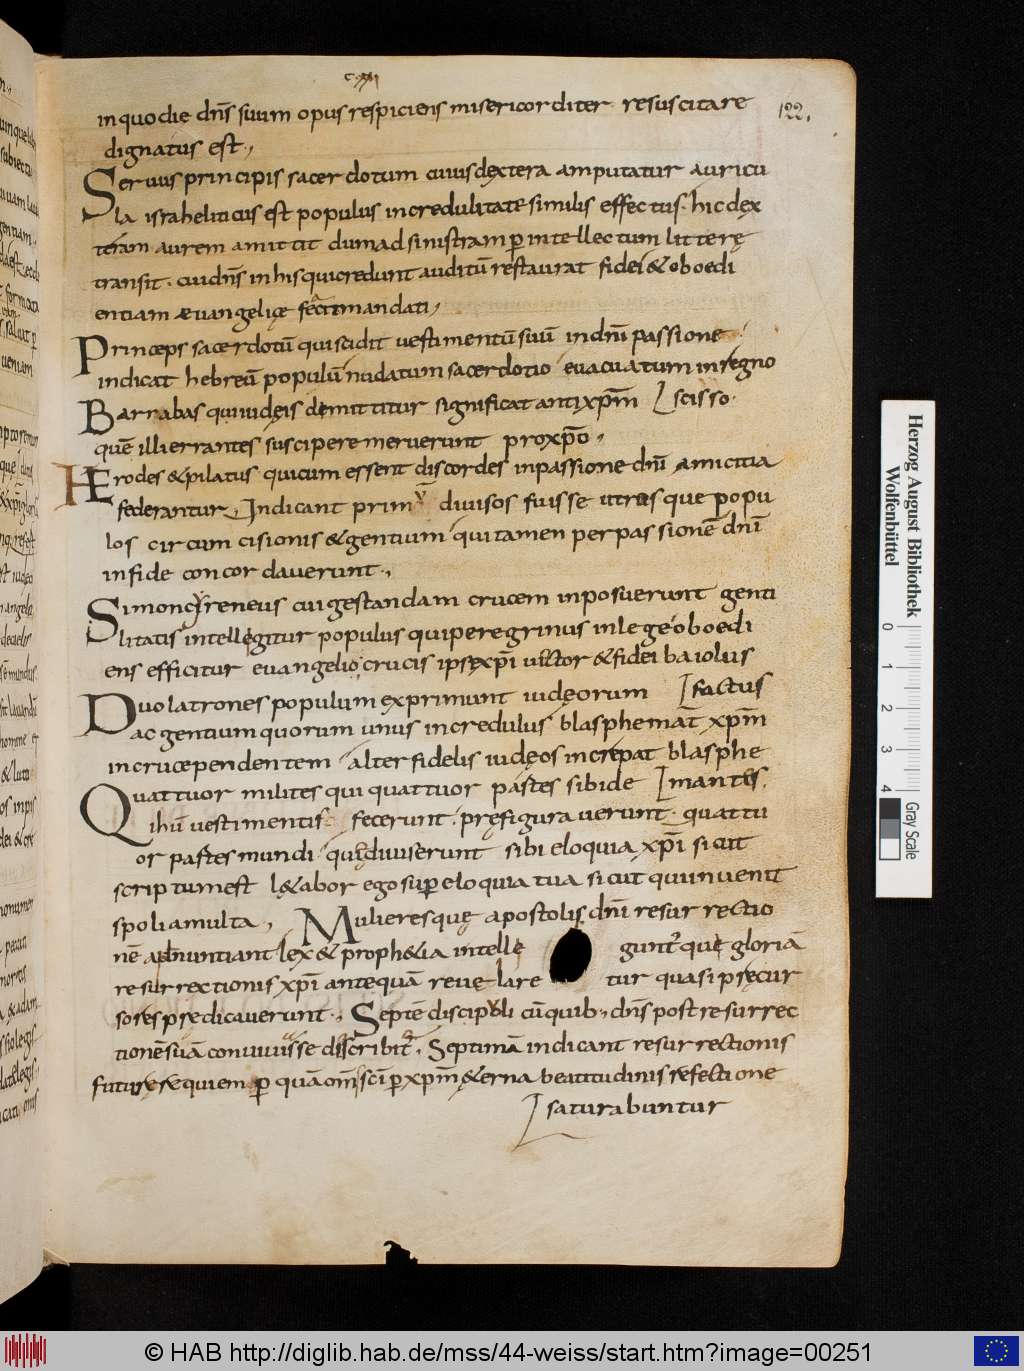 122.
in quo die dn̄s suum opus respiciens misericorditer resuscitare
dignatus est.,
Seruus principis sacerdotum cuius dextera amputatur auricu
la israheliticus est populus incredulitate similis effectus. hic dex
teram aurem amittit dum ad sinistram ꝑ intellectum litterę
transit. cui dn̄s in his qui credunt auditū restaurat fidei & oboedi
entiam æuangelicę mandati,
Princeps sacerdotū qui scidit uestimentū suū in dn̄i passione
indicat hebreū populū nudatum sacerdotio euacuatum in regno
Barrabas qui iudęis demittitur significat antixp̄m scisso.
quē illi errantes suscipere meruerunt pro xp̄o,
HErodes & pilatus qui cum essent discordes in passione dn̄i amicitia
federantur, Indicant prim diuisos fuisse utrosque ꝑ popu
los circumcisionis & gentium qui tamen per passionē dn̄i
in fide concordauerunt.,
Simon cyreneus cui gestandam crucem inposuerunt genti
litatis intellegitur populus qui peregrinus in lege oboedi
ens efficitur euangelio crucis ipse xp̄i uictor & fidei baiolus
Duo latrones populum exprimunt iudęorum factus
ac gentium quorum unus incredulus blasphemat xp̄m
in cruce pendentem alter fidelis iudęos increpat blasphe
Quattuor milites qui quattuor partes sibi de mantes.
ihū uestimentis fecerunt. pręfigurauerunt. quattu
or partes mundi qui diuiserunt sibi eloquia xp̄i sicut
scriptum est l&abor ego sup̄ eloquia tua sicut qui inuenit
spolia multa, Mulieres quę apostolis dn̄i resurrectio
nē adnuntiant lex & proph&ia intelle gunt' quę gloriā
resurrectionis xp̄i antequā reuelare tur quasi pręcur
sores predicauerunt., Septē discipuli cū quib; dn̄s post resurrec
tionē suā conuiuasse discribit'. Septimā indicant resurrectionis
future requiem ꝑ quā om̄s sc̄i ꝑ xp̄m &erna beatitudinis refectione
saturabuntur
Herzog August Bibliothek
Wolfenbüttel
0 1 2 3 4
Gray Scale
© HAB http://diglib.hab.de/mss/44-weiss/start.htm?image=00251